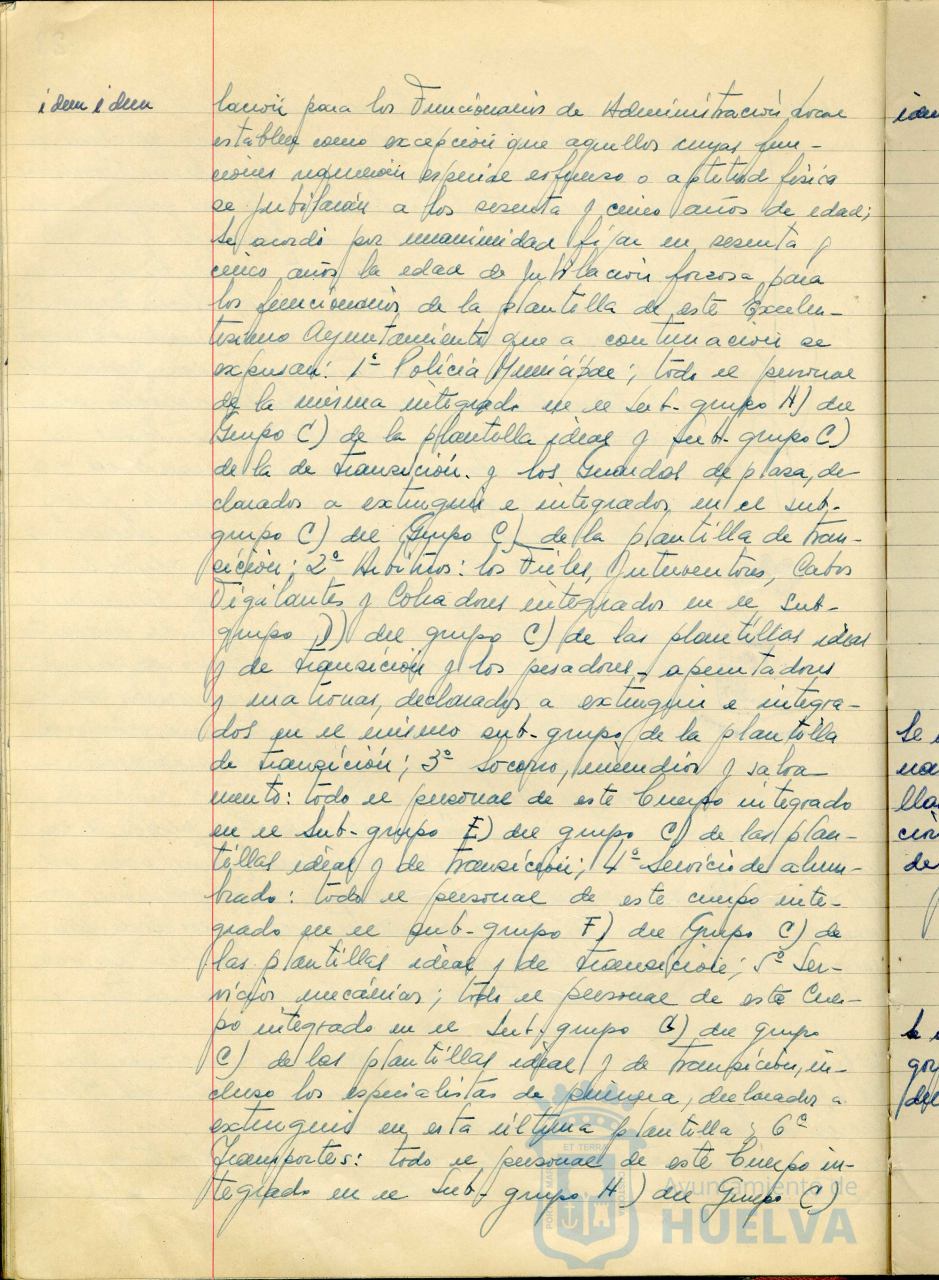 idem idem
lación para los Funcionarios de Administración Local
establece como excepción que aquellos cuyas fun-
ciones requieran especial esfuerzo o aptitud física
se jubilarán a los sesenta y cinco años de edad;
se acordó por unanimidad fijar en sesenta y
cinco años la edad de jubilación forzosa para
los funcionarios de la plantilla de este Excelen-
tísimo Ayuntamiento que a continuación se
expresan: 1º Policía Municipal; todo el personal
de la misma integrado en el sub-grupo H) del
Grupo C) de la plantilla ideal y sub-grupo C)
de la de transición. y los Guardas de plaza, de-
clarados a extinguir e integrados en el sub-
grupo C) del Grupo C) de la plantilla de tran-
sición; 2º Arbitrios: los Fieles, Interventores, Cabos
Vigilantes y Cobradores integrados en el Sub-
grupo D) del grupo C) de las plantillas ideal
y de transición y los pesadores-apuntadores
y matronas, declarados a extinguir e integra-
dos en el mismo sub-grupo de la plantilla
de transición; 3º Socorro, incendios y salva-
mento: todo el personal de este Cuerpo integrado
en el Sub-grupo E) del grupo C) de las plan-
tillas ideal y de transición; 4º Servicio de alum-
brado: todo el personal de este cuerpo inte-
grado en el sub-grupo F) del Grupo C) de
las plantillas ideal y de transición; 5º Ser-
vicios mecánicos; todo el personal de este Cuer-
po integrado en el Sub-grupo del grupo
C) de las plantillas ideal y de transición, in-
cluso los especialistas de primera, declarados a
extinguir en esta última plantilla; 6º
Transportes: todo el personal de este Cuerpo in-
tegrado en el Sub-grupo H) del Grupo C)
idem
Se
na
lla
ción
de
la
gor
del
ET TERRA
PORTUS MARIS
CUSTODIA
Ayuntamiento de
HUELVA